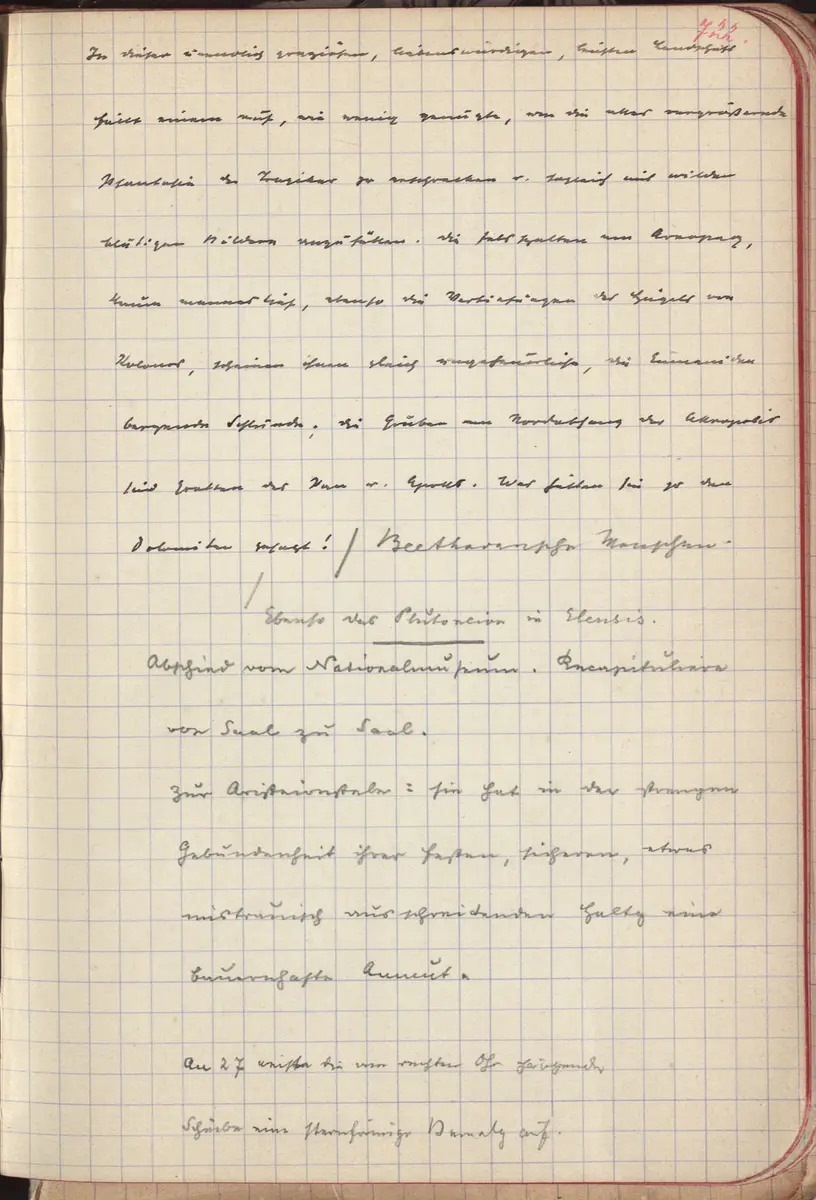 722.
In dieser unendlich graziösen, liebenswürdigen, leichten Landschaft
fällt einem auf, wie wenig genügte, um die alles vergrößernde
Phantasie der Tragiker zu entfachen u. sogleich mit wilden
blutigen Bildern anzufüllen. Die Felsspalten am Areopag,
kaum mannstief, ebenso die Vertiefungen des Hügels von
Kolonos, scheinen ihnen gleich ungeheuerliche, die Eumeniden
bergende Schlünde; die Gruben am Nordabhang der Akropolis
sind Grotten des Pan u. Apoll. Was hätten sie zu den
Dolomiten gesagt! / Beethovensche Menschen.
/ Ebenso das Plutoneion in Eleusis.
Abschied vom Nationalmuseum. Recapituliere
von Saal zu Saal.
Zur Aristionstele: sie hat in der strengen
Gebundenheit ihrer festen, sicheren, etwas
mistrauisch ausschreitenden Haltg eine
bauernhafte Anmut.
An 27 weist die am rechten Ohr
Scheibe eine sternförmige Bemalg auf.